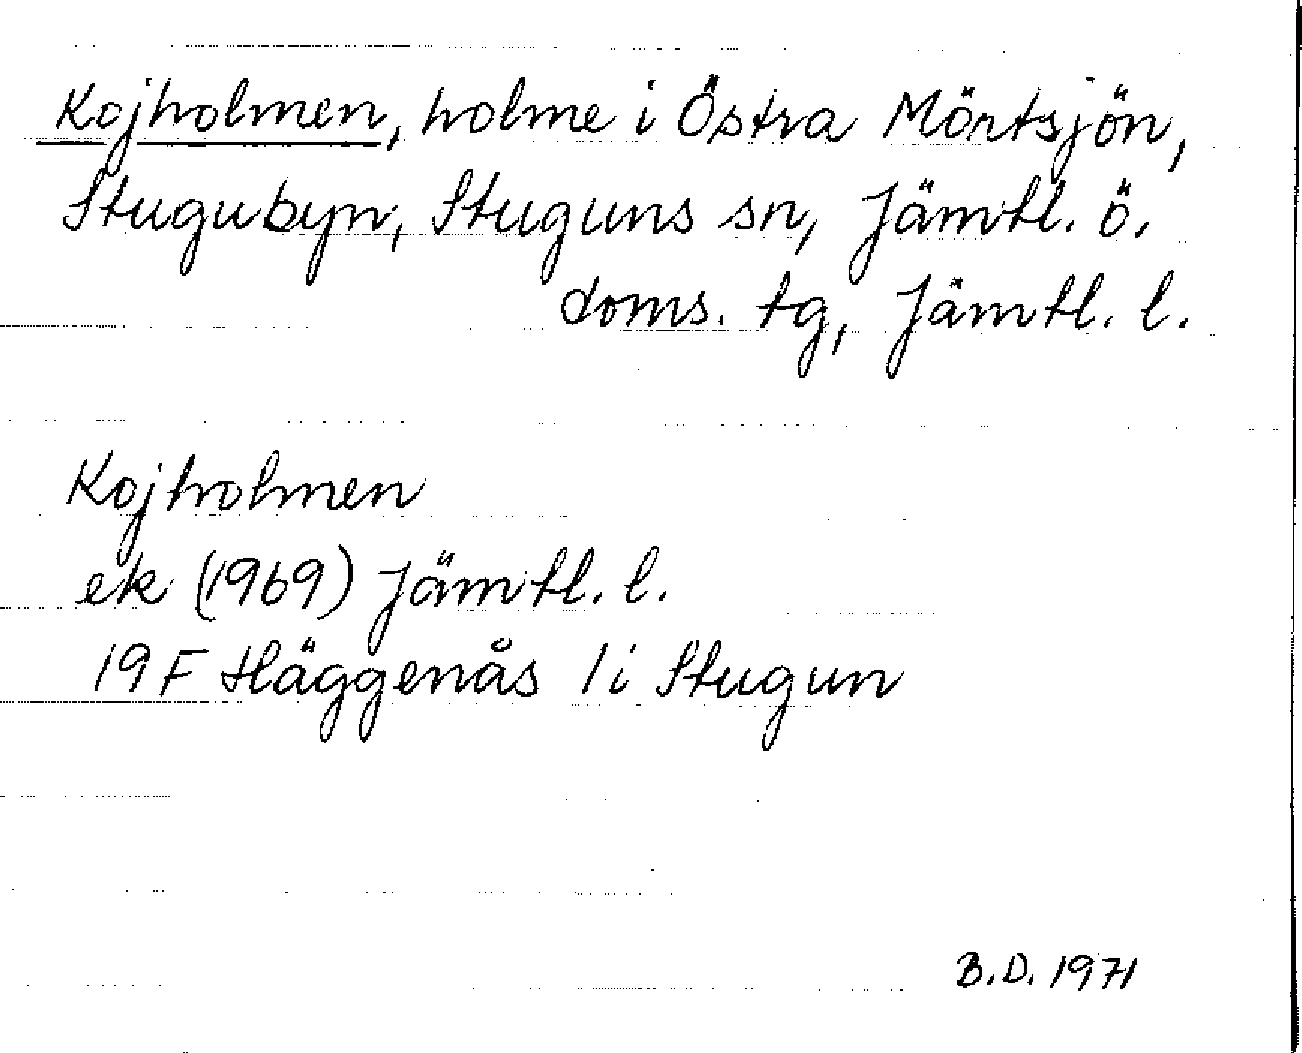 Kojholmen, holme i Östra Mörtsjön,
Stugubyn, Stuguns sn, Jämtl. ö.
doms. tg, Jämtl. l.
Kojholmen
ek (1969) Jämtl. l.
19F Häggenås 1i Stugun
B.D. 1971